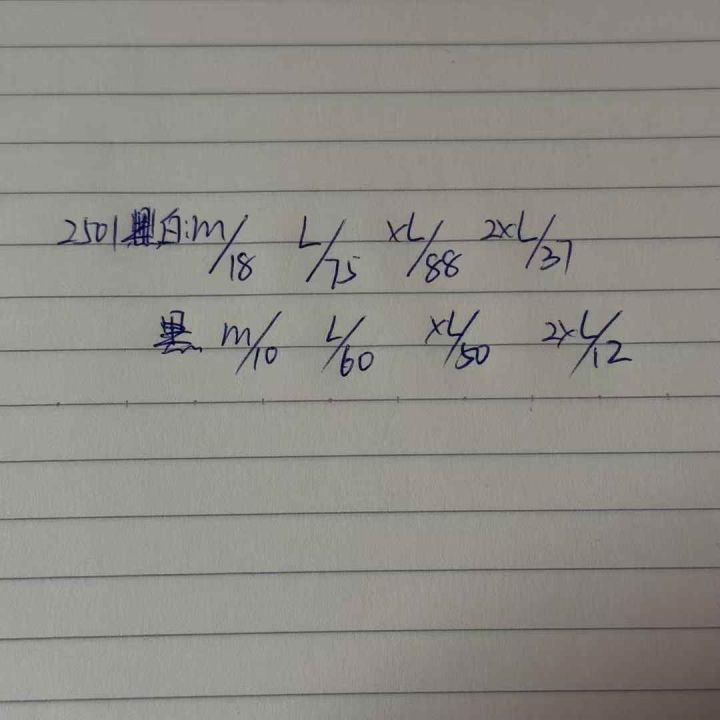 2501 白: m/18 L/75 XL/88 2XL/37
黑 m/10 L/60 XL/50 2XL/12